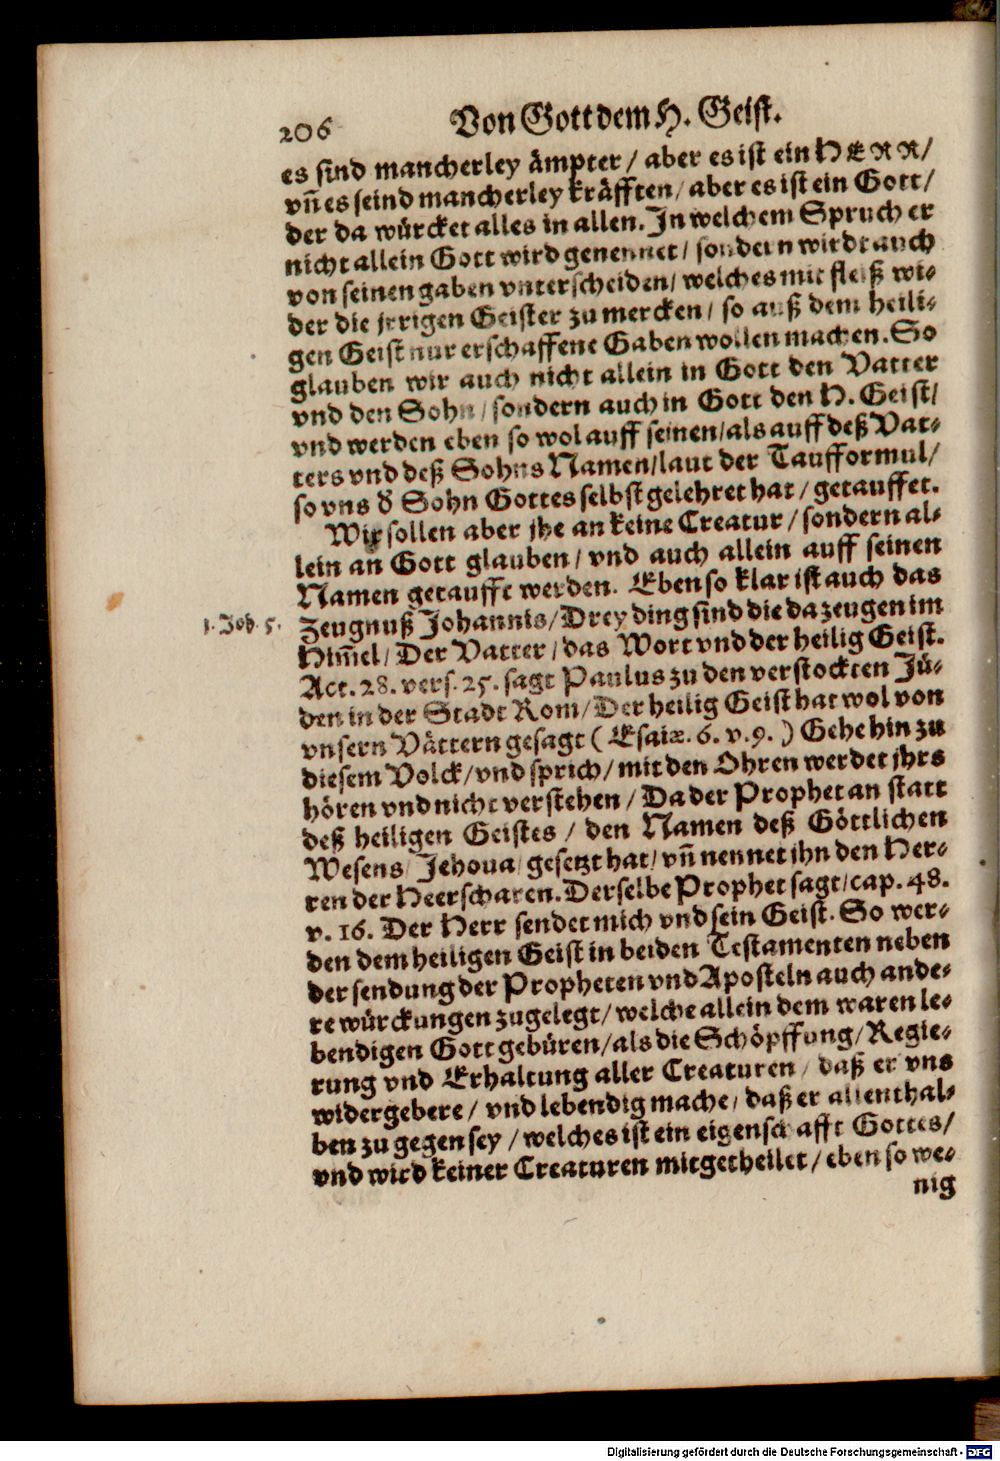 206
Von Gott dem H. Geist.
es sind mancherley ämpter / aber es ist ein HERR/
vñ es seind mancherley kräfften / aber es ist ein Gott/
der da würcket alles in allen. In welchem Spruch er
nicht allein Gott wird genennet / sondern wirdt auch
von seinen gaben vnterscheiden / welches mit fleiß wi-
der die jrrigen Geister zu mercken / so auß dem heili-
gen Geist nur erschaffene Gaben wollen machen. So
glauben wir auch nicht allein in Gott den Vatter
vnd den Sohn / sondern auch in Gott den H. Geist/
vnd werden eben so wol auff seinen/als auff deß Vat-
ters vnd deß Sohns Namen/laut der Taufformul/
so vns ð Sohn Gottes selbst gelehret hat / getauffet.
Wir sollen aber jhe an keine Creatur / sondern al-
lein an Gott glauben / vnd auch allein auff seinen
Namen getaufft werden. Eben so klar ist auch das
1. Joh. 5.
Zeugnuß Johannis/Drey ding sind die da zeugen im
Him̃el / Der Vatter / das Wort vnd der heilig Geist.
Act. 28. vers. 25. sagt Paulus zu den verstockten Jü-
den in der Stadt Rom/Der heilig Geist hat wol von
vnsern Vättern gesagt ( Esaiæ. 6. v. 9. ) Gehe hin zu
diesem Volck/vnd sprich/mit den Ohren werdet jhrs
hören vnd nicht verstehen / Da der Prophet an statt
deß heiligen Geistes / den Namen deß Göttlichen
Wesens / Jehoua / gesetzt hat / vñ nennet ihn den Her-
ren der Heerscharen. Derselbe Prophet sagt/cap. 48.
v. 16. Der Herr sendet mich vnd sein Geist. So wer-
den dem heiligen Geist in beiden Testamenten neben
der sendung der Propheten vnd Aposteln auch ande-
re würckungen zugelegt / welche allein dem waren le-
bendigen Gott gebüren/als die Schöpffung/Regie-
rung vnd Erhaltung aller Creaturen / daß er vns
widergebere / vnd lebendig mache / daß er allenthal-
ben zu gegen sey / welches ist ein eigenschafft Gottes/
vnd wird keiner Creaturen mitgetheilet / eben so we-
nig
Digitalisierung gefördert durch die Deutsche Forschungsgemeinschaft - DFG